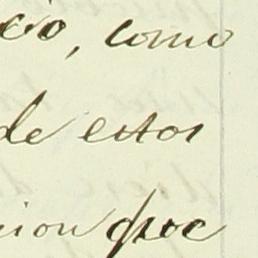 cio, como
de estos
cion que